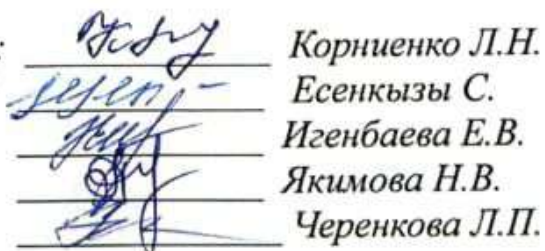 Корниенко Л.Н.
Есенкызы С.
Игенбаева Е.В.
Якимова Н.В.
Черенкова Л.П.